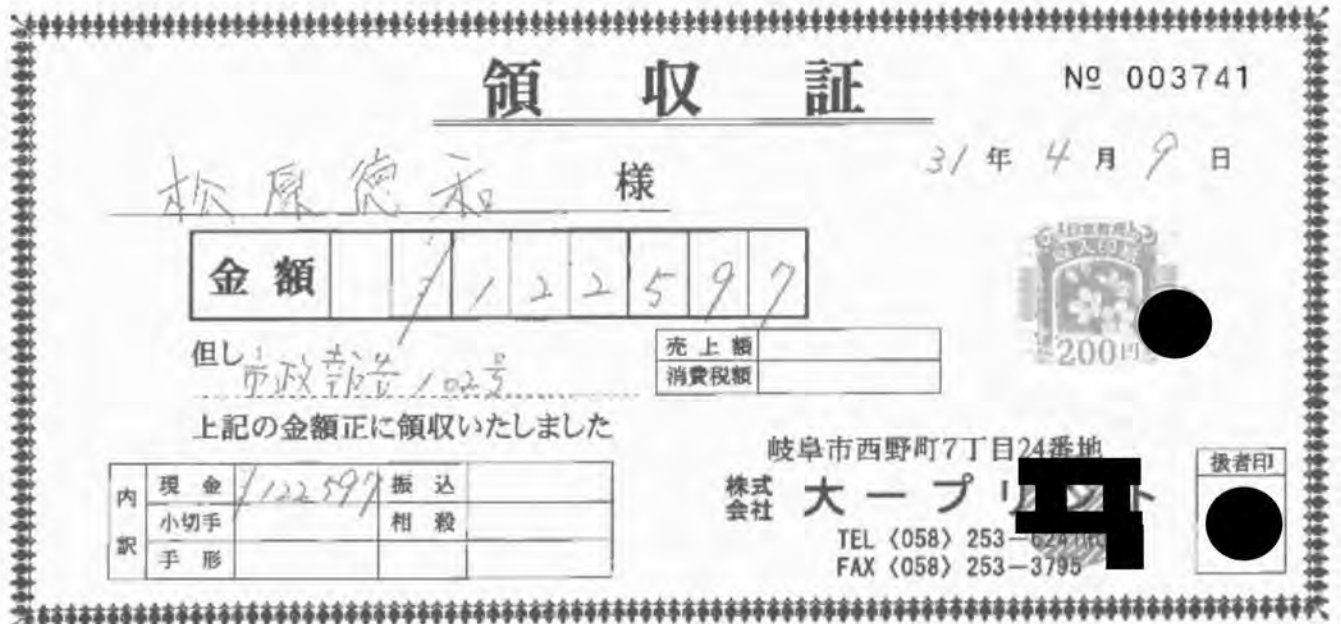 領収証
№ 003741
31年4月9日
松原徳和 様
金額 ¥122597
200円
但し 市政報告102号
売上額
消費税額
上記の金額正に領収いたしました
内訳
現金 ¥122597 振込
小切手 相殺
手形
岐阜市西野町7丁目24番地
株式会社 大一プリント
TEL〈058〉253-
FAX〈058〉253-3795
扱者印